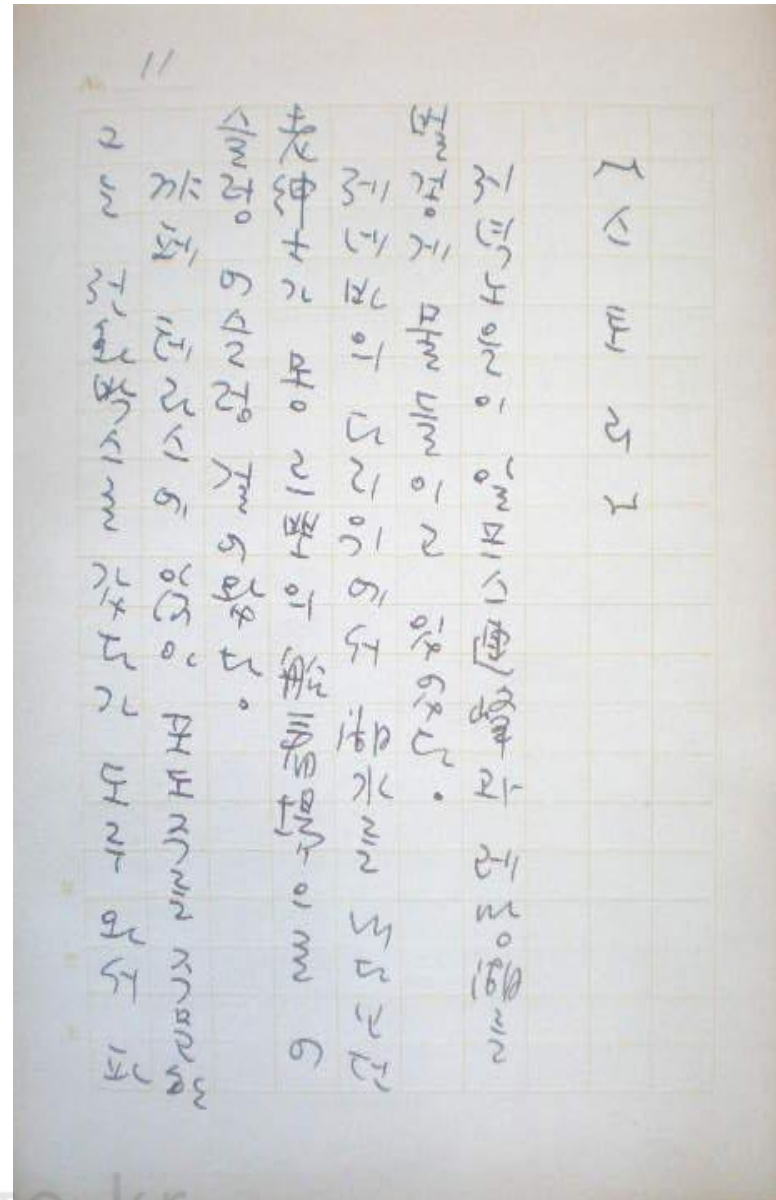 11
[스토리]
저녁노을이 알프스連峰과 레망湖를
뻘겋게 물들이고 있었다.
제네바의 다리위에서 湖水를 내다보던
老紳士가 船着場으로 어
슬렁어슬렁 걸어왔다.
까페 테라스에 포도주를 주문한
그는 전화박스를 갔다가 도루 와서